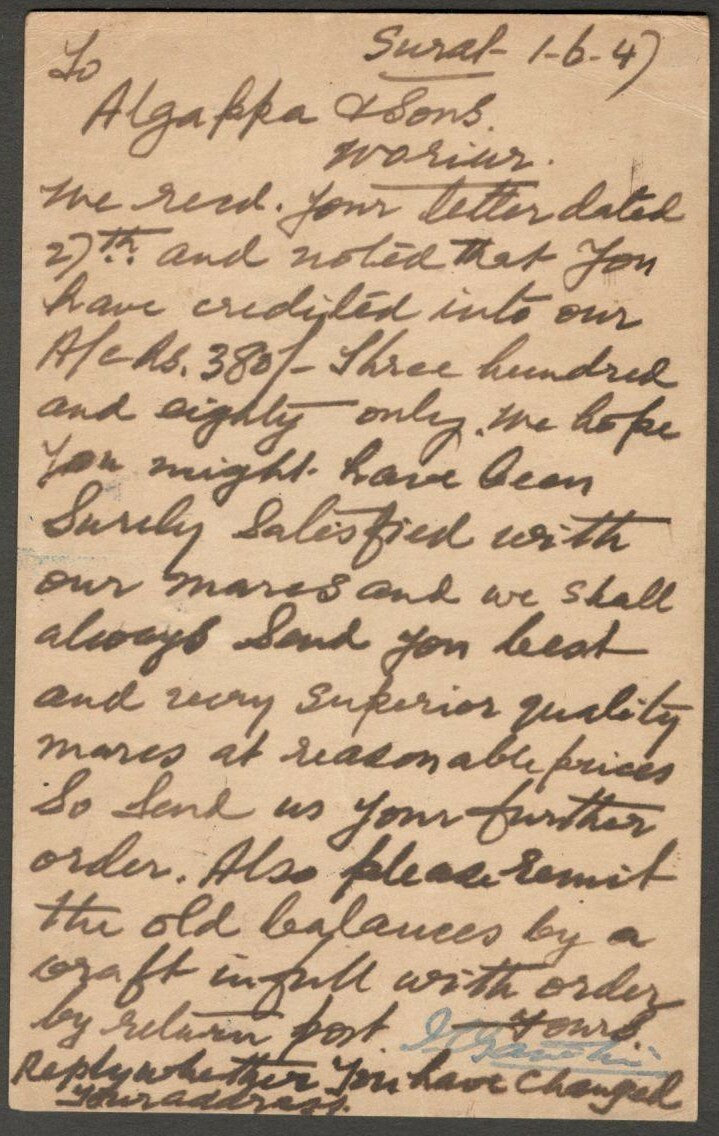 Surat 1-6-47
To
Algappa & Sons.
Woriur.
We recd. Your letter dated
27th. and noted that You
have credited into our
A/c Rs. 380/- Three hundred
and eighty only. We hope
You might have been
Surely Satisfied with
our wares and we shall
always Send you best
and very Superior quality
wares at reasonable prices
So Send us Your further
order. Also please remit
the old balances by a
draft in full with order
by return post Yours
Gandhi
Reply whether You have changed
Your address.